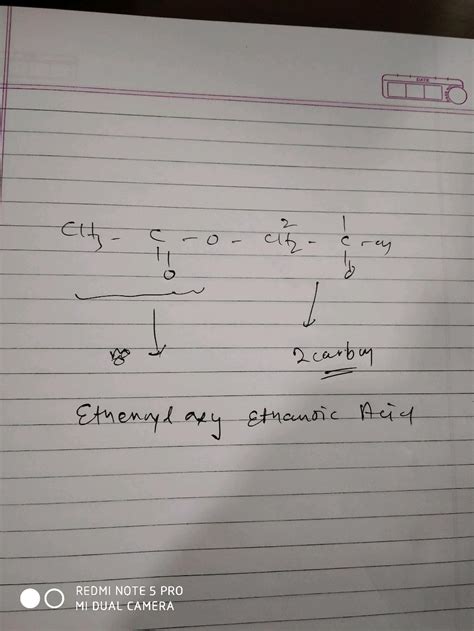 DATE
2 1
CH3 - C - O - CH2 - C - OH
|| ||
O O
2 carbon
Ethenoyl oxy Ethanoic Acid
REDMI NOTE 5 PRO
MI DUAL CAMERA